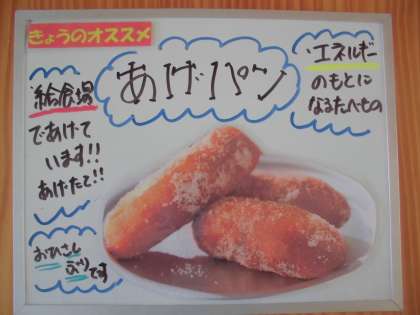 きょうのオススメ
あげパン
エネルギー
のもとに
なるたべもの
給食場
であげて
います!!
あげたて!!
おひさし
ぶりです